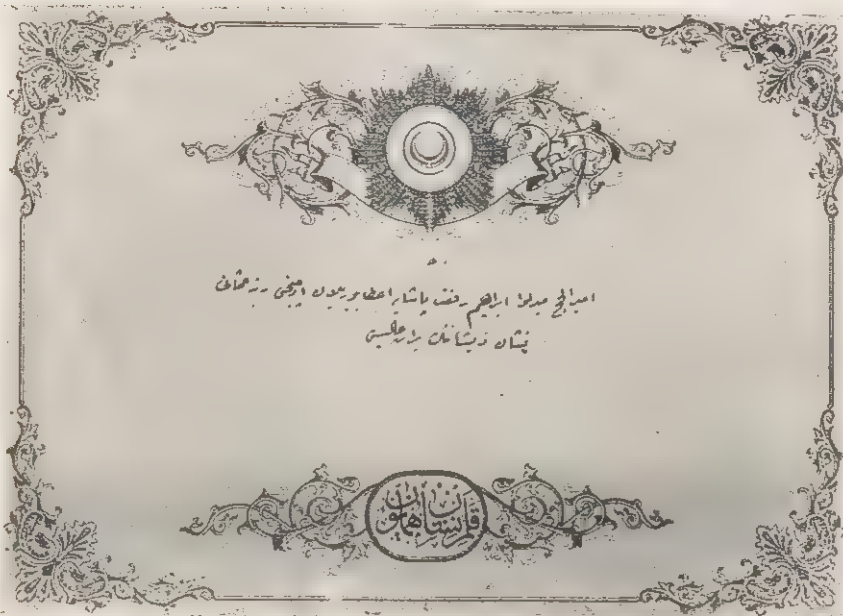 اميرالحج ميرلوا ابراهيم رفعت پاشايه اعطا بيوريلان اوچنجى رتبه عثمانى
نشان ذيشاننك براءت عاليسى
قلم نشان همايون